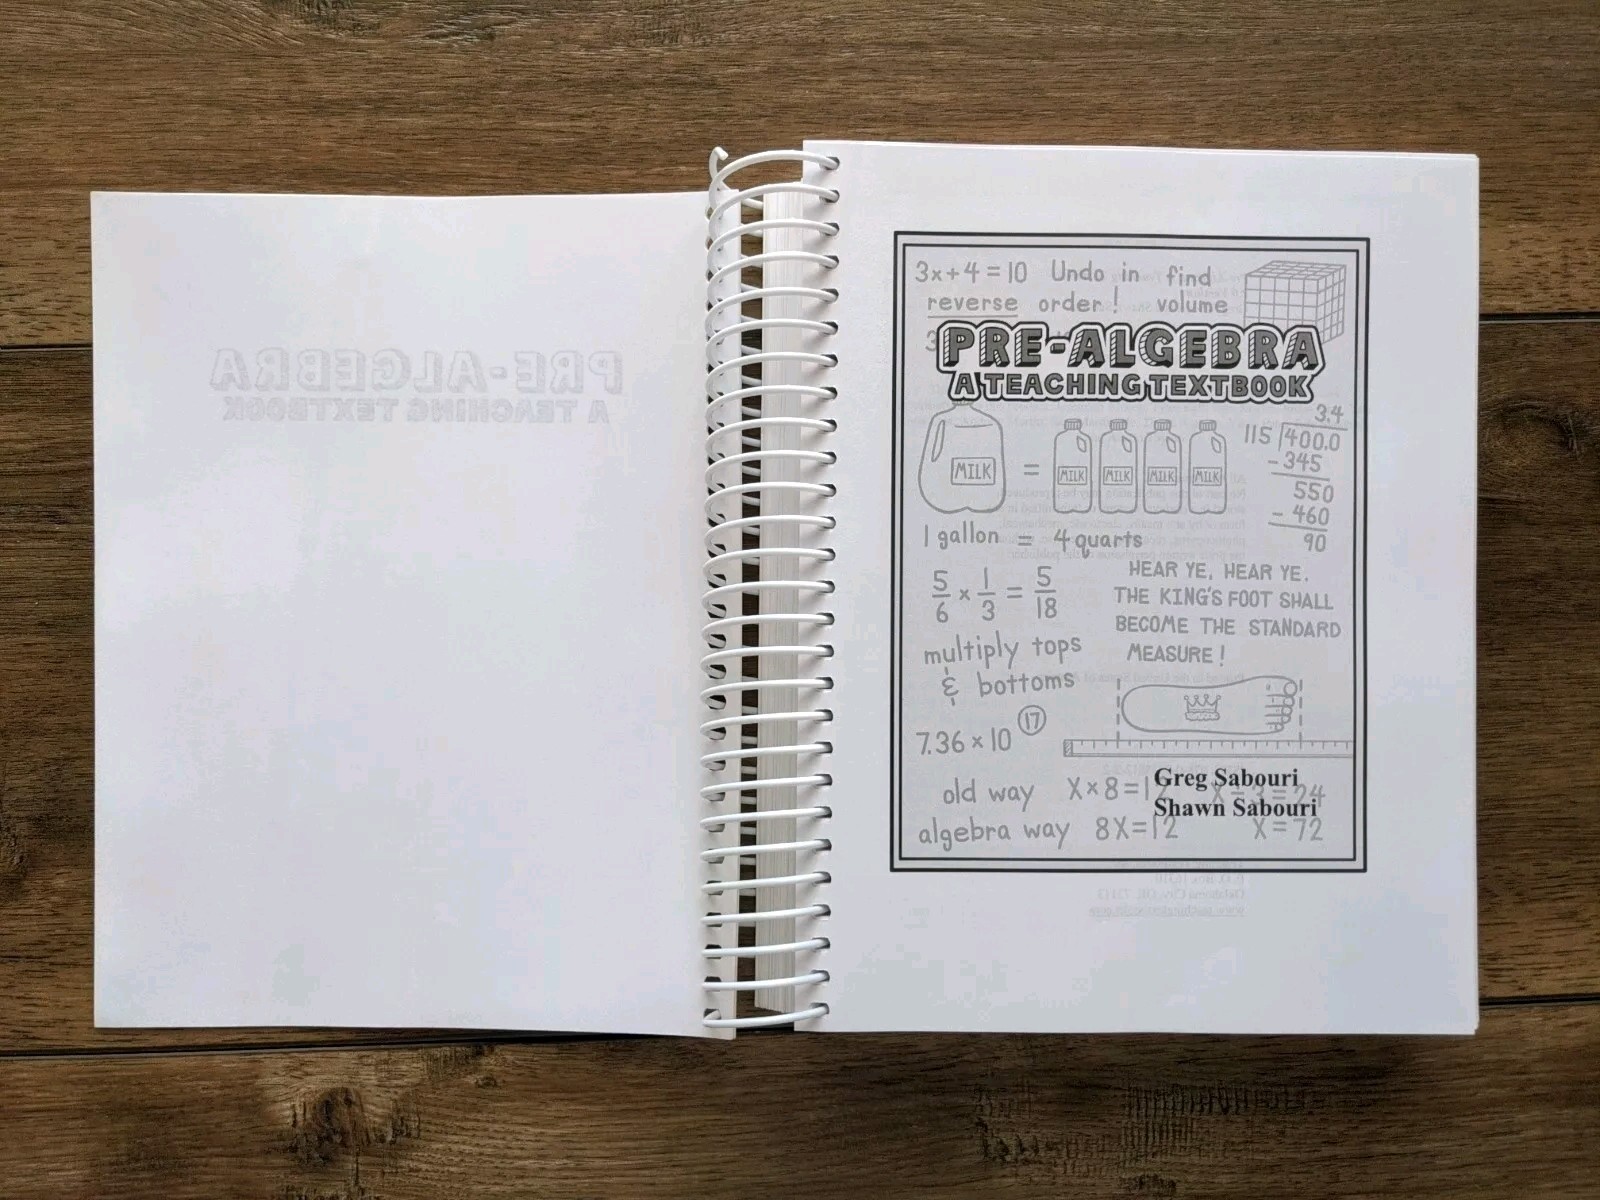 3x+4=10 Undo in find
reverse order! volume
3
PRE-ALGEBRA
A TEACHING TEXTBOOK
MILK = MILK MILK MILK MILK
1 gallon = 4 quarts
3.4
115 400.0
-345
550
- 460
90
5/6 × 1/3 = 5/18
multiply tops
& bottoms
HEAR YE, HEAR YE.
THE KING'S FOOT SHALL
BECOME THE STANDARD
MEASURE!
7.36 × 10 17
Greg Sabouri
Shawn Sabouri
old way X×8=12 X÷3=24
algebra way 8X=12 X=72
PRE-ALGEBRA
A TEACHING TEXTBOOK